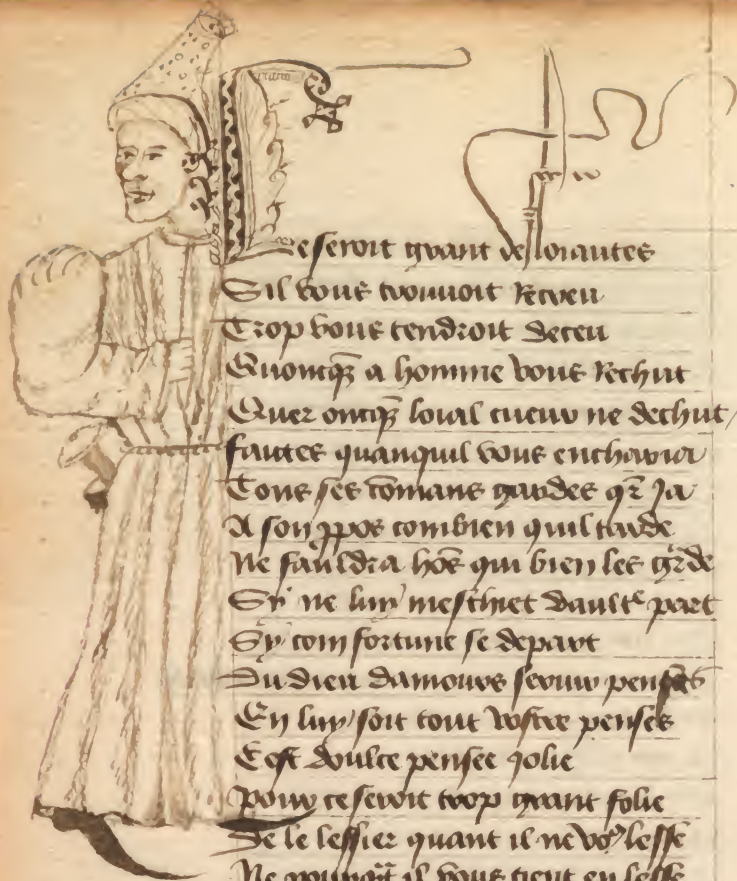 Ce seroit grant desloiautes
Sil vous trouvoit Recreu
Trop vous tendroit deceu
Quoncq̃s a homme vous Rechut
Quer oncq̃s loial cueur ne dechut
faites quanquil vous encharia
Tous ses cõmans gardes q̃r ja
A son ꝓpos combien quil tarde
Ne fauldra hõe qui bien les grde
Sy ne luy meschiet daultᵉ part
Sy com fortune se depart
Du dieu damours servir penses
En luy soit tout vostre penses
Cest doulce pensee jolie
Pour ce seroit trop grant folie
De le lessier quant il ne voꝰ lesse
Ne pourq̃t il vous tient en lesse